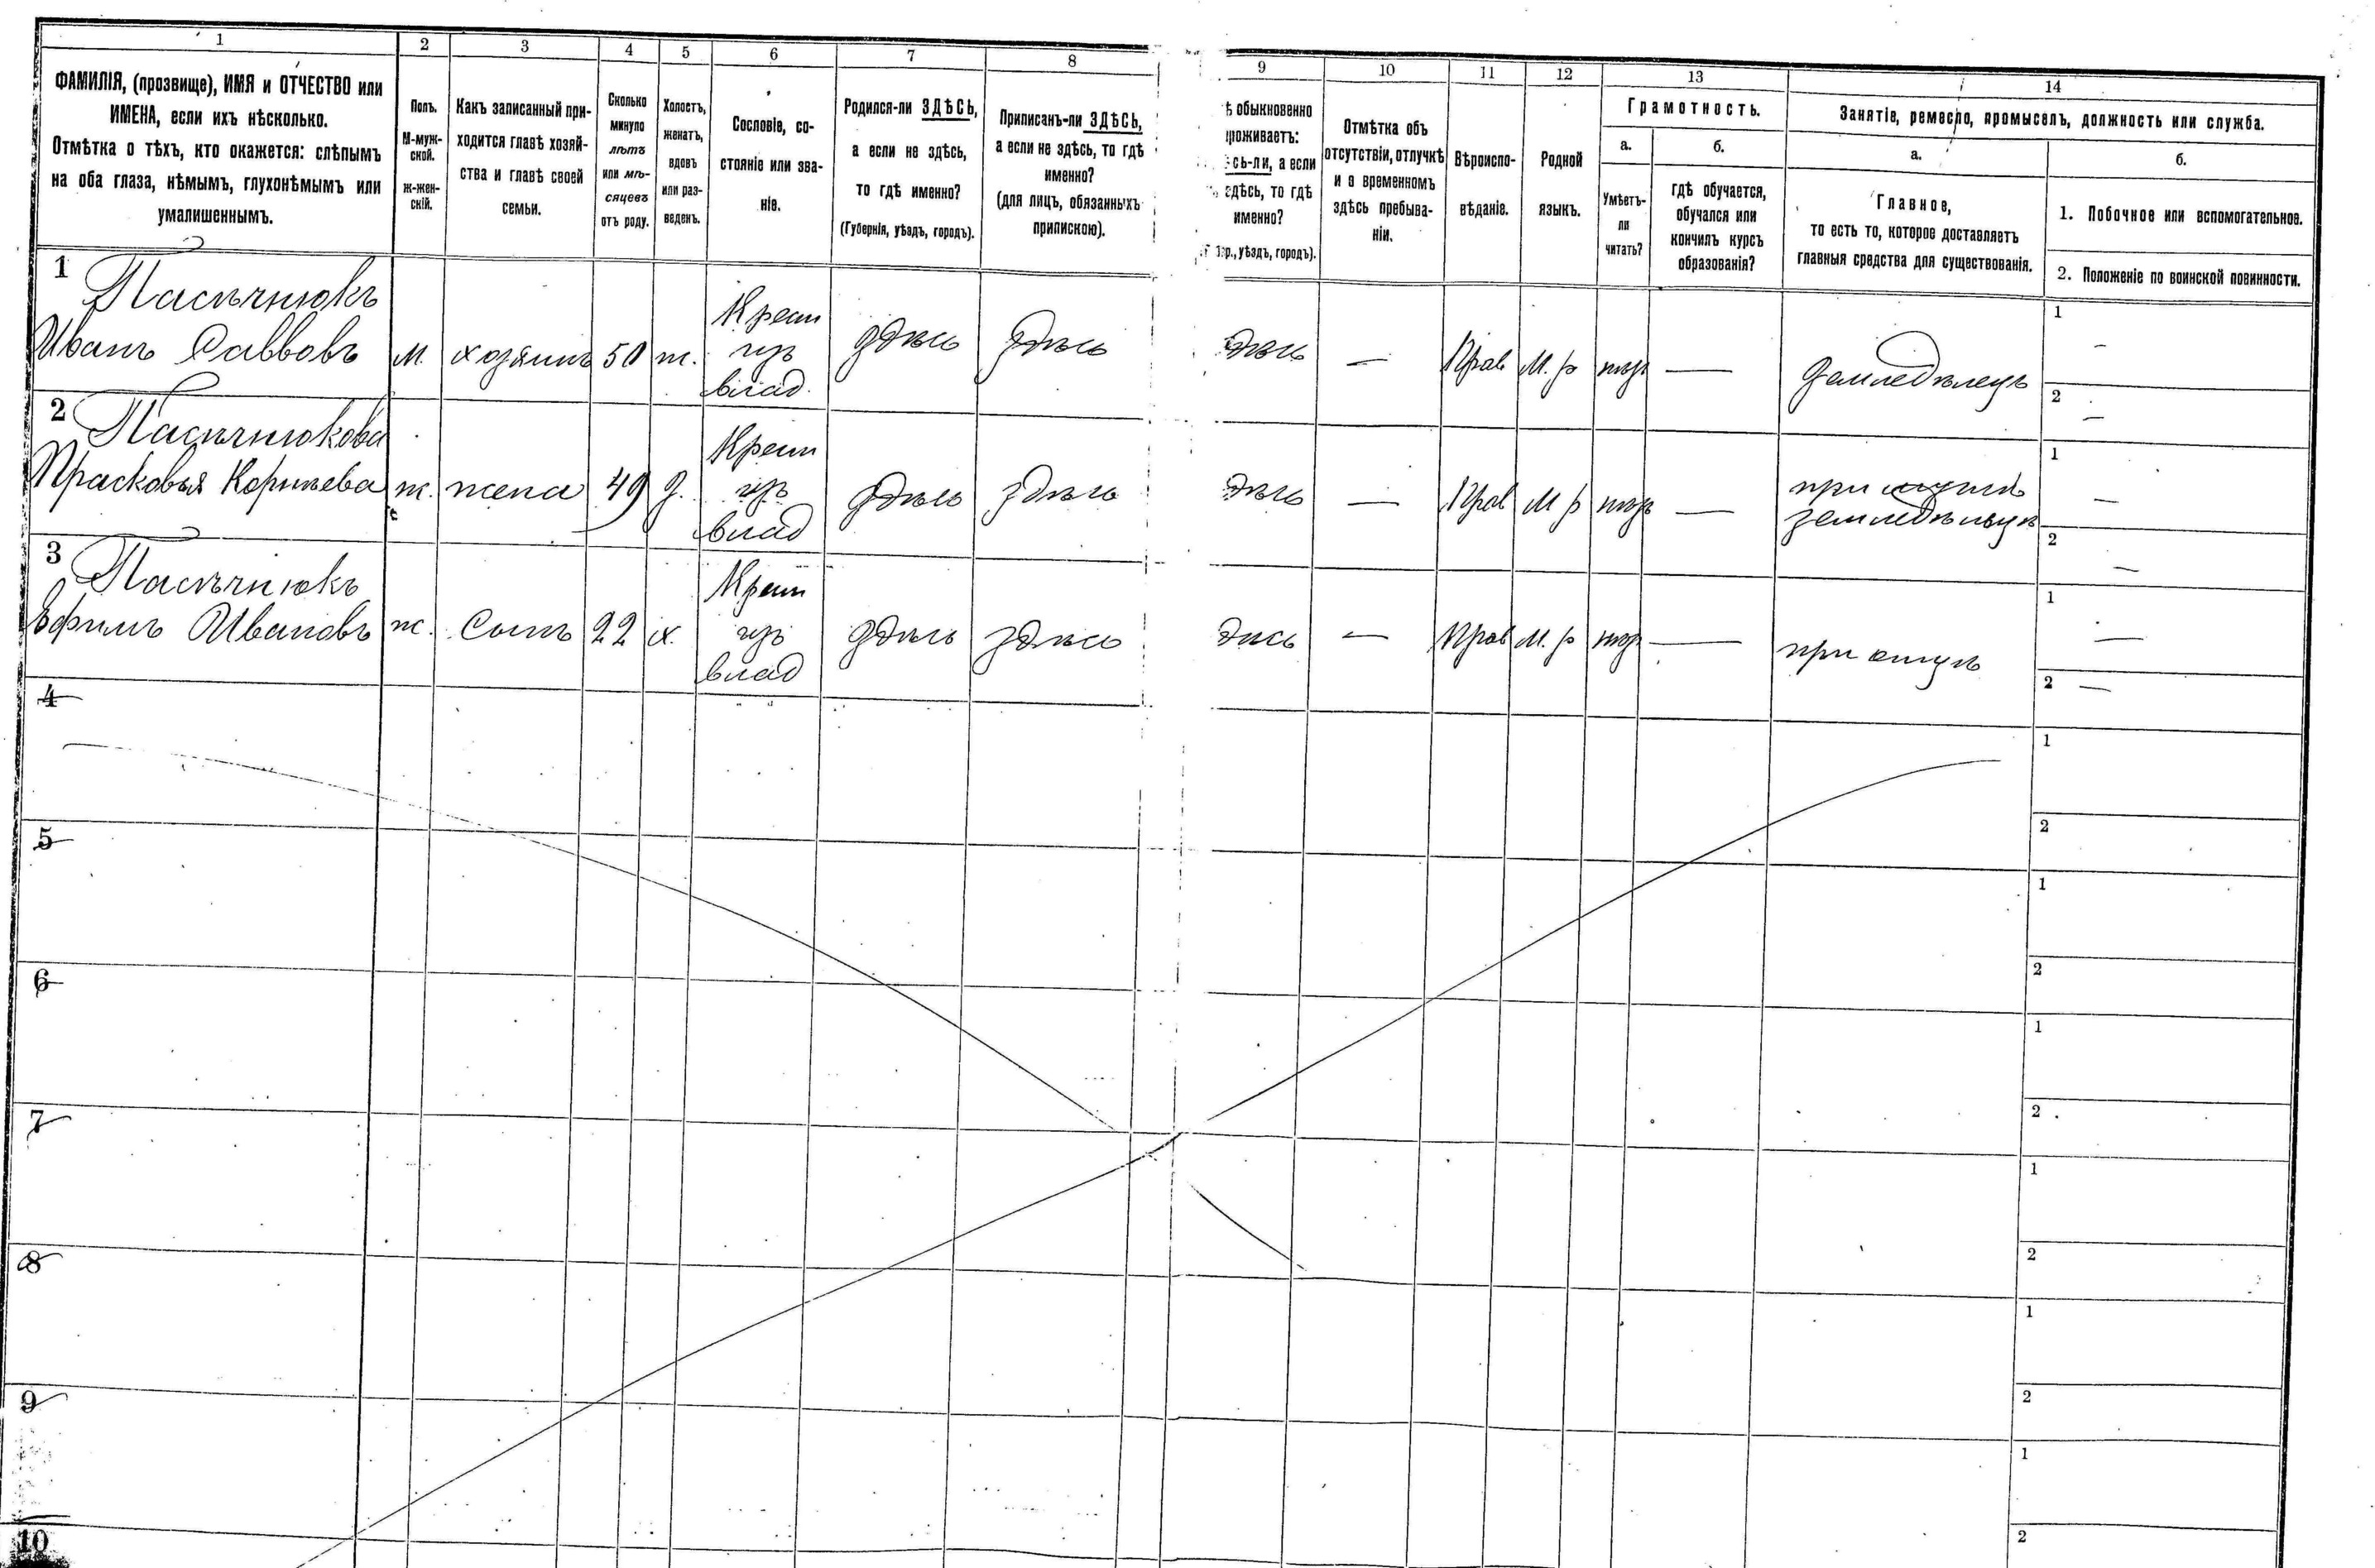 1
2
3
4
5
6
7
8
9
10
11
12
13
14
ФАМИЛІЯ, (прозвище), ИМЯ и ОТЧЕСТВО или
ИМЕНА, если ихъ нѣсколько.
Отмѣтка о тѣхъ, кто окажется: слѣпымъ
на оба глаза, нѣмымъ, глухонѣмымъ или
умалишеннымъ.
Полъ.
М-муж-
ской.
ж-жен-
скій.
Какъ записанный при-
ходится главѣ хозяй-
ства и главѣ своей
семьи.
Сколько
минуло
лѣтъ
или мѣ-
сяцевъ
отъ роду.
Холостъ,
женатъ,
вдовъ
или раз-
веденъ.
Сословіе, со-
стояніе или зва-
ніе.
Родился-ли ЗДѢСЬ,
а если не здѣсь,
то гдѣ именно?
(Губернія, уѣздъ, городъ).
Приписанъ-ли ЗДѢСЬ,
а если не здѣсь, то гдѣ
именно?
(для лицъ, обязанныхъ
припискою).
ѣ обыкновенно
роживаетъ:
сь-ли, а если
здѣсь, то гдѣ
именно?
р., уѣздъ, городъ).
Отмѣтка объ
отсутствіи, отлучкѣ
и о временномъ
здѣсь пребыва-
ніи.
Вѣроиспо-
вѣданіе.
Родной
языкъ.
Грамотность.
а.
Умѣетъ-
ли
читать?
б.
гдѣ обучается,
обучался или
кончилъ курсъ
образованія?
Занятіе, ремесло, промыселъ, должность или служба.
а.
Главное,
то есть то, которое доставляетъ
главныя средства для существованія.
б.
1. Побочное или вспомогательное.
2. Положеніе по воинской повинности.
1
Пасѣчнюкъ
Иванъ Саввовъ
м.
хозяинъ
50
ж.
Крест
изъ
влад.
здѣсь
здѣсь
здѣсь
—
Прав
М. р
—
земледѣлецъ
1
—
2
—
2
Пасѣчнюкова
Прасковья Корнѣева
ж.
жена
49
з.
Крест
изъ
влад
здѣсь
здѣсь
здѣсь
—
Прав
М р
—
при мужѣ
земледѣльцѣ
1
—
2
—
3
Пасѣчнюкъ
Ефимъ Ивановъ
м.
Сынъ
22
х.
Крест
изъ
влад
здѣсь
здѣсь
здѣсь
—
Прав
М. р
—
при отцѣ
1
—
2
—
4
1
2
5
1
2
6
1
2
7
1
2
8
1
2
9
1
2
10